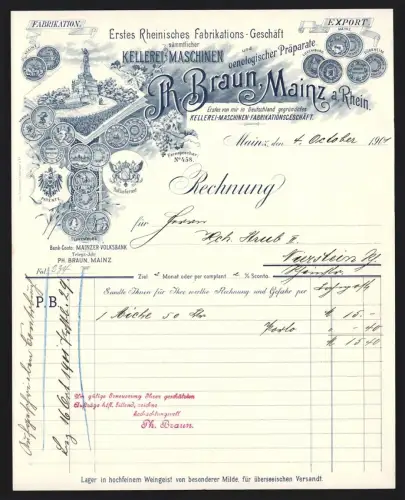 FABRIKATION.
EXPORT.
Erstes Rheinisches Fabrikations-Geschäft
sämmtlicher
KELLEREI-MASCHINEN
und
oenologischer Präparate
Ph. Braun, Mainz a/Rhein.
Erstes von mir in Deutschland gegründetes
KELLEREI-MASCHINEN-FABRIKATIONSGESCHÄFT.
Fernsprecher
No. 458.
Mainz, den 4. October 1901
PATENT.
Rechnung
für Herrn
Hch.
Bank-Conto: MAINZER-VOLKSBANK
Telegr.-Adr.
PH. BRAUN, MAINZ.
Fol. 534
Ziel Monat oder per comptant % Sconto.
P. B.
Sandte Ihnen für Ihre werthe Rechnung und Gefahr per
1 Aiche 50 15.-
Porto -.40
15.40
Um gütige Erneuerung Ihrer geschätzten
Aufträge höfl. bittend, zeichne
hochachtungsvoll
Ph. Braun.
16 Oct 1901
Lager in hochfeinem Weingeist von besonderer Milde, für überseeischen Versandt